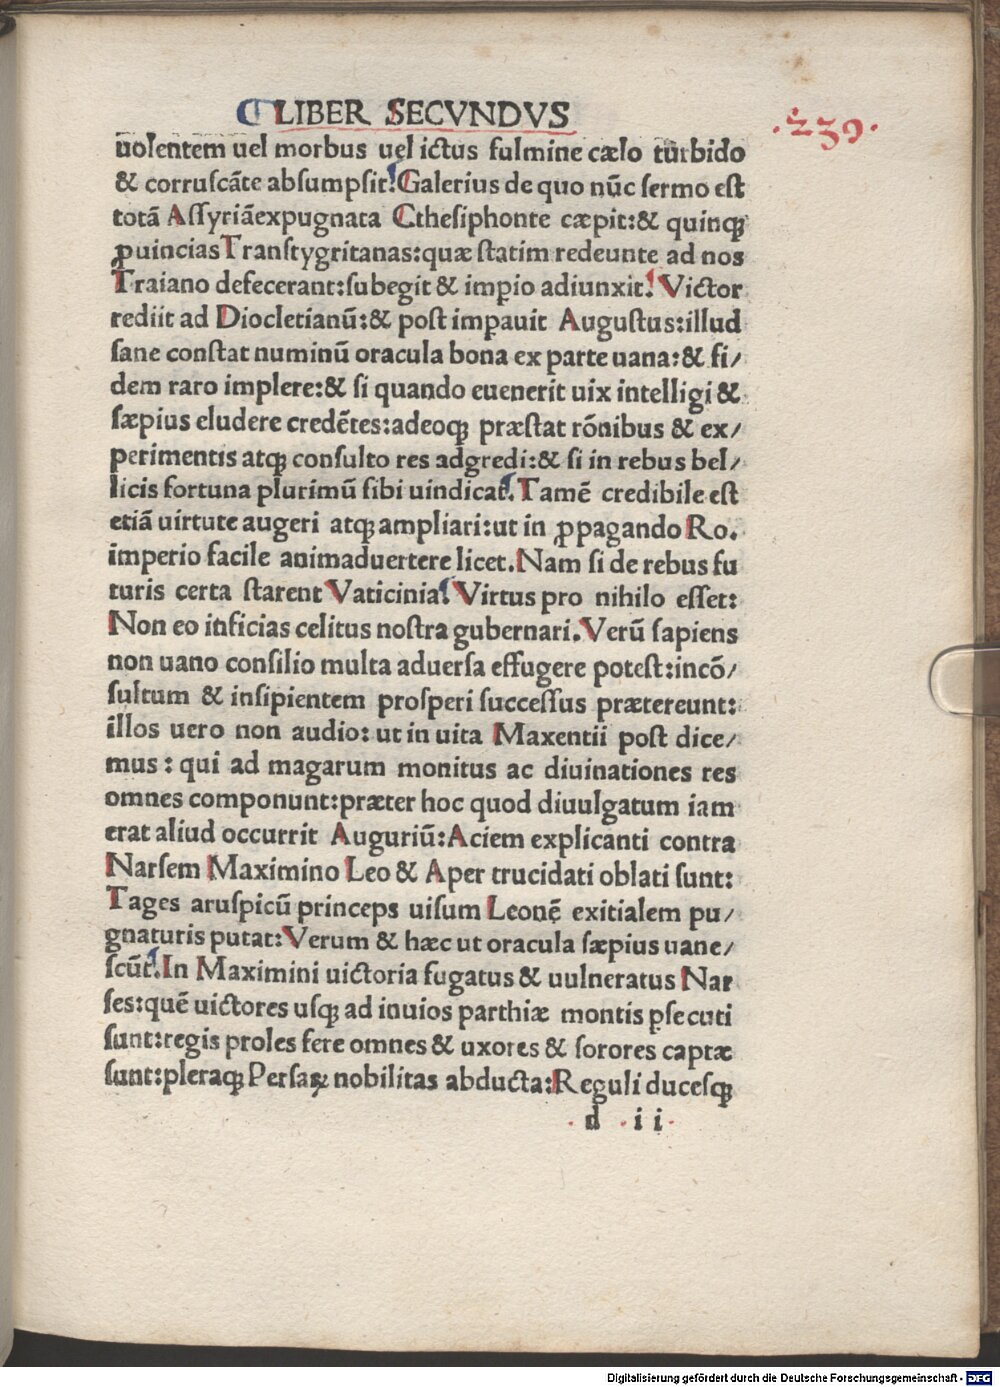 LIBER SECVNDVS
.239.
uolentem uel morbus uel ictus fulmine cælo turbido
& corruscāte absumpsit. Galerius de quo nūc sermo est
totā Assyriā expugnata Cthesiphonte cæpit: & quinqꝫ
ꝓuincias Transtygritanas: quæ statim redeunte ad nos
Traiano defecerant: subegit & impio adiunxit. Victor
rediit ad Diocletianū: & post impauit Augustus: illud
sane constat numinū oracula bona ex parte uana: & fi/
dem raro implere: & si quando euenerit uix intelligi &
sæpius eludere credētes: adeoqꝫ præstat rōnibus & ex/
perimentis atqꝫ consulto res adgredi: & si in rebus bel/
licis fortuna plurimū sibi uindicat. Tamē credibile est
etiā uirtute augeri atqꝫ ampliari: ut in ꝓpagando Ro.
imperio facile animaduertere licet. Nam si de rebus fu
turis certa starent Vaticinia. Virtus pro nihilo esset:
Non eo inficias celitus nostra gubernari. Verū sapiens
non uano consilio multa aduersa effugere potest: incō/
sultum & insipientem prosperi successus prætereunt:
illos uero non audio: ut in uita Maxentii post dice/
mus: qui ad magarum monitus ac diuinationes res
omnes componunt: præter hoc quod diuulgatum iam
erat aliud occurrit Auguriū: Aciem explicanti contra
Narsem Maximino Leo & Aper trucidati oblati sunt:
Tages aruspicū princeps uisum Leonē exitialem pu/
gnaturis putat: Verum & hæc ut oracula sæpius uane/
scūt. In Maximini uictoria fugatus & uulneratus Nar
ses: quē uictores usqꝫ ad inuios parthiæ montis ꝑsecuti
sunt: regis proles fere omnes & uxores & sorores captæ
sunt: pleraqꝫ Persaꝝ nobilitas abducta: Reguli ducesqꝫ
d ii
Digitalisierung gefördert durch die Deutsche Forschungsgemeinschaft - DFG